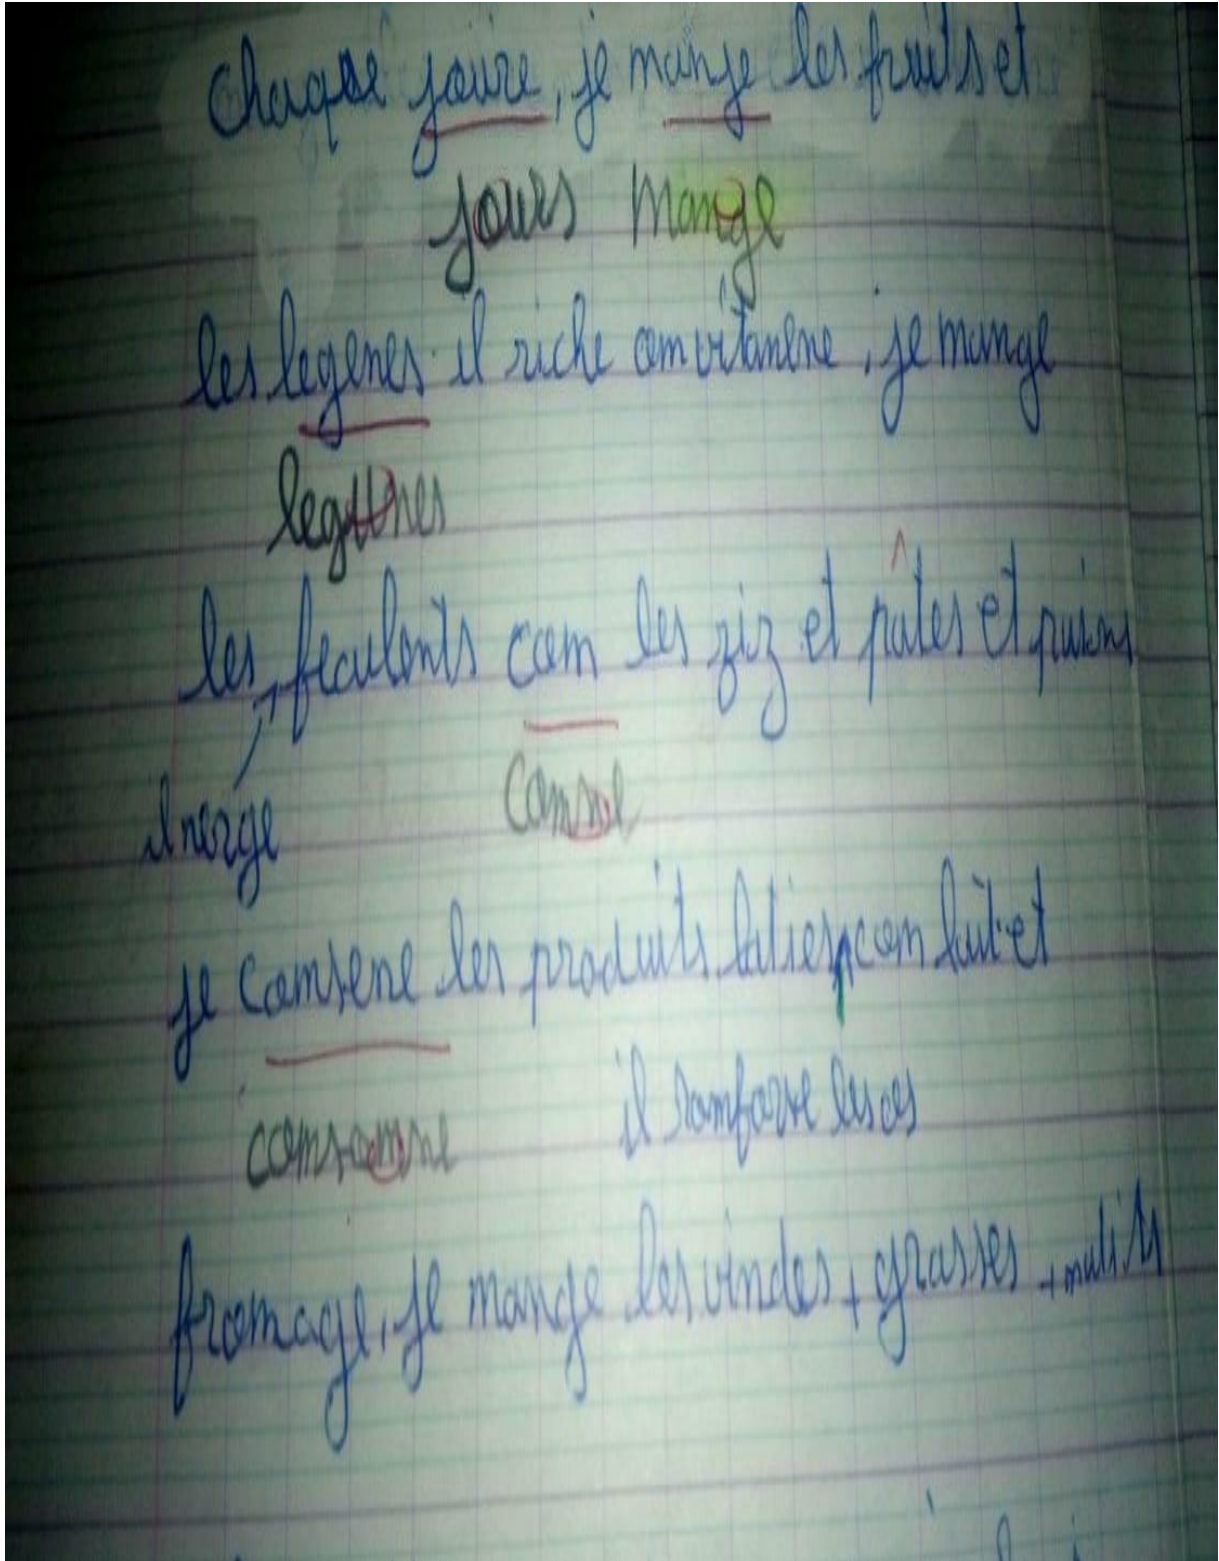 chaque jouire, je manje les fruits et
jours mange
les legenes il riche om vitamene, je mange
legumes
les feculents com les ziz et pâtes et puisons
énerge
comme
je comsene les produits latiers com lait et
comsomme
il romforse les os
fromage, je mange les vindes + grasses + matiers